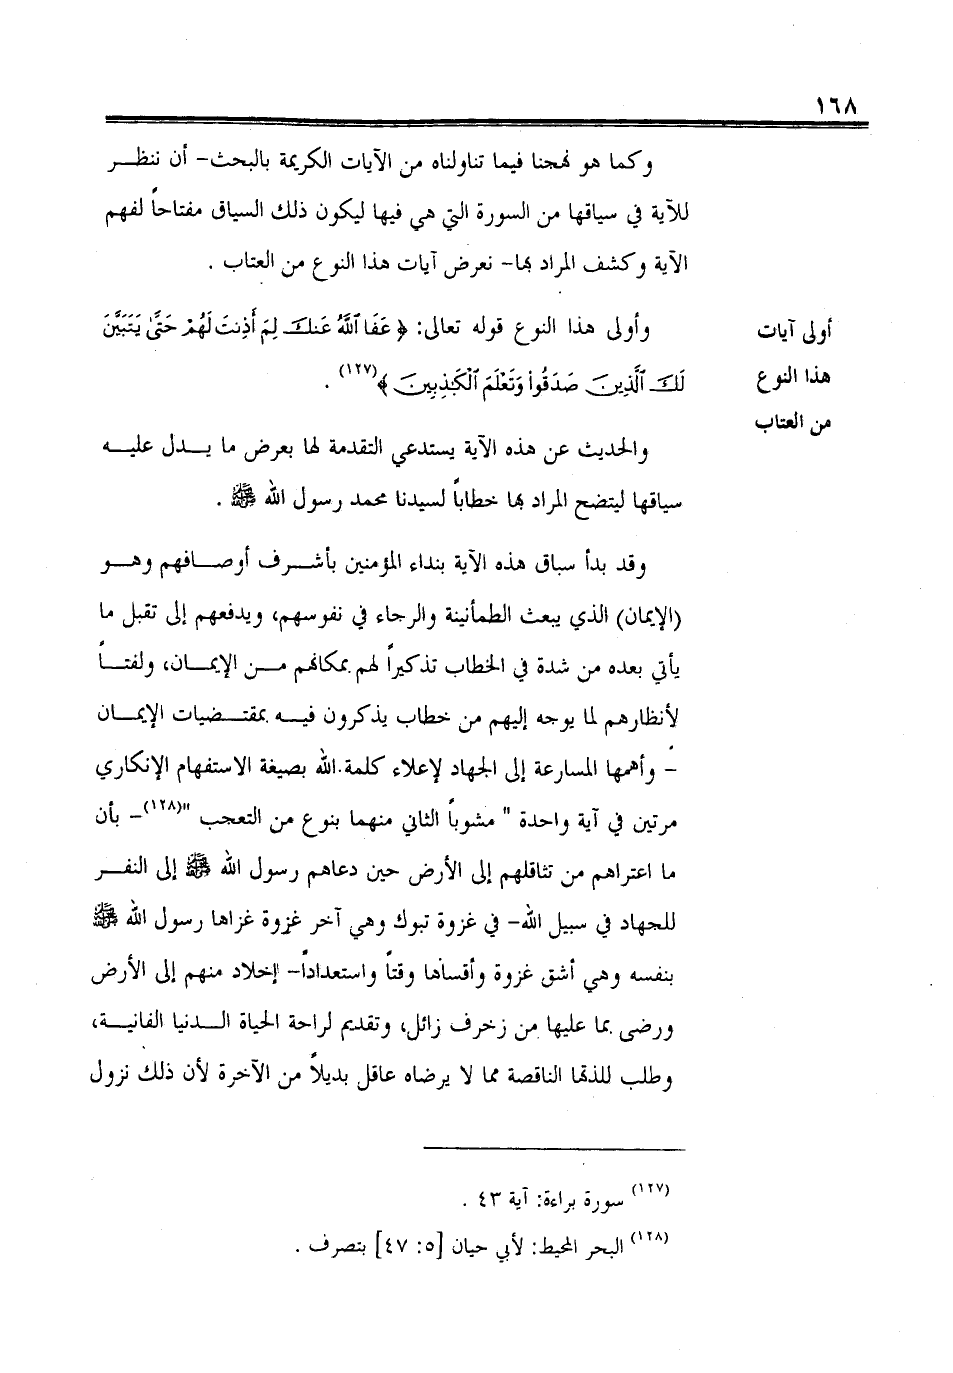 ١٦٨
وكما هو نهجنا فيما تناولناه من الآيات الكريمة بالبحث- أن ننظـر
للآية في سياقها من السورة التي هي فيها ليكون ذلك السياق مفتاحاً لفهم
الآية وكشف المراد بها- نعرض آيات هذا النوع من العتاب .
أولى آيات
هذا النوع
من العتاب
وأولى هذا النوع قوله تعالى: ﴿ عَفَا ٱللَّهُ عَنكَ لِمَ أَذِنتَ لَهُمْ حَتَّىٰ يَتَبَيَّنَ
لَكَ ٱلَّذِينَ صَدَقُواْ وَتَعْلَمَ ٱلْكَٰذِبِينَ ﴾(١٢٧) .
والحديث عن هذه الآية يستدعي التقدمة لها بعرض ما يـدل عليـه
سياقها ليتضح المراد بها خطاباً لسيدنا محمد رسول الله ﷺ .
وقد بدأ سباق هذه الآية بنداء المؤمنين بأشـرف أوصـافهم وهـو
(الإيمان) الذي يبعث الطمأنينة والرجاء في نفوسهم، ويدفعهم إلى تقبل ما
يأتي بعده من شدة في الخطاب تذكيراً لهم بمكانهم مـن الإيمـان، ولفتـاً
لأنظارهم لما يوجه إليهم من خطاب يذكرون فيـه بمقتـضيات الإيمـان
- وأهمها المسارعة إلى الجهاد لإعلاء كلمة الله بصيغة الاستفهام الإنكاري
مرتين في آية واحدة " مشوباً الثاني منهما بنوع من التعجب "(١٢٨)- بأن
ما اعتراهم من تثاقلهم إلى الأرض حين دعاهم رسول الله ﷺ إلى النفـر
للجهاد في سبيل الله- في غزوة تبوك وهي آخر غزوة غزاها رسول الله ﷺ
بنفسه وهي أشق غزوة وأقساها وقتاً واستعداداً- إخلاد منهم إلى الأرض
ورضى بما عليها من زخرف زائل، وتقديم لراحة الحياة الـدنيا الفانيـة،
وطلب للذتها الناقصة مما لا يرضاه عاقل بديلاً من الآخرة لأن ذلك نزول
(١٢٧) سورة براءة: آية ٤٣ .
(١٢٨) البحر المحيط: لأبي حيان [٥: ٤٧] بتصرف .